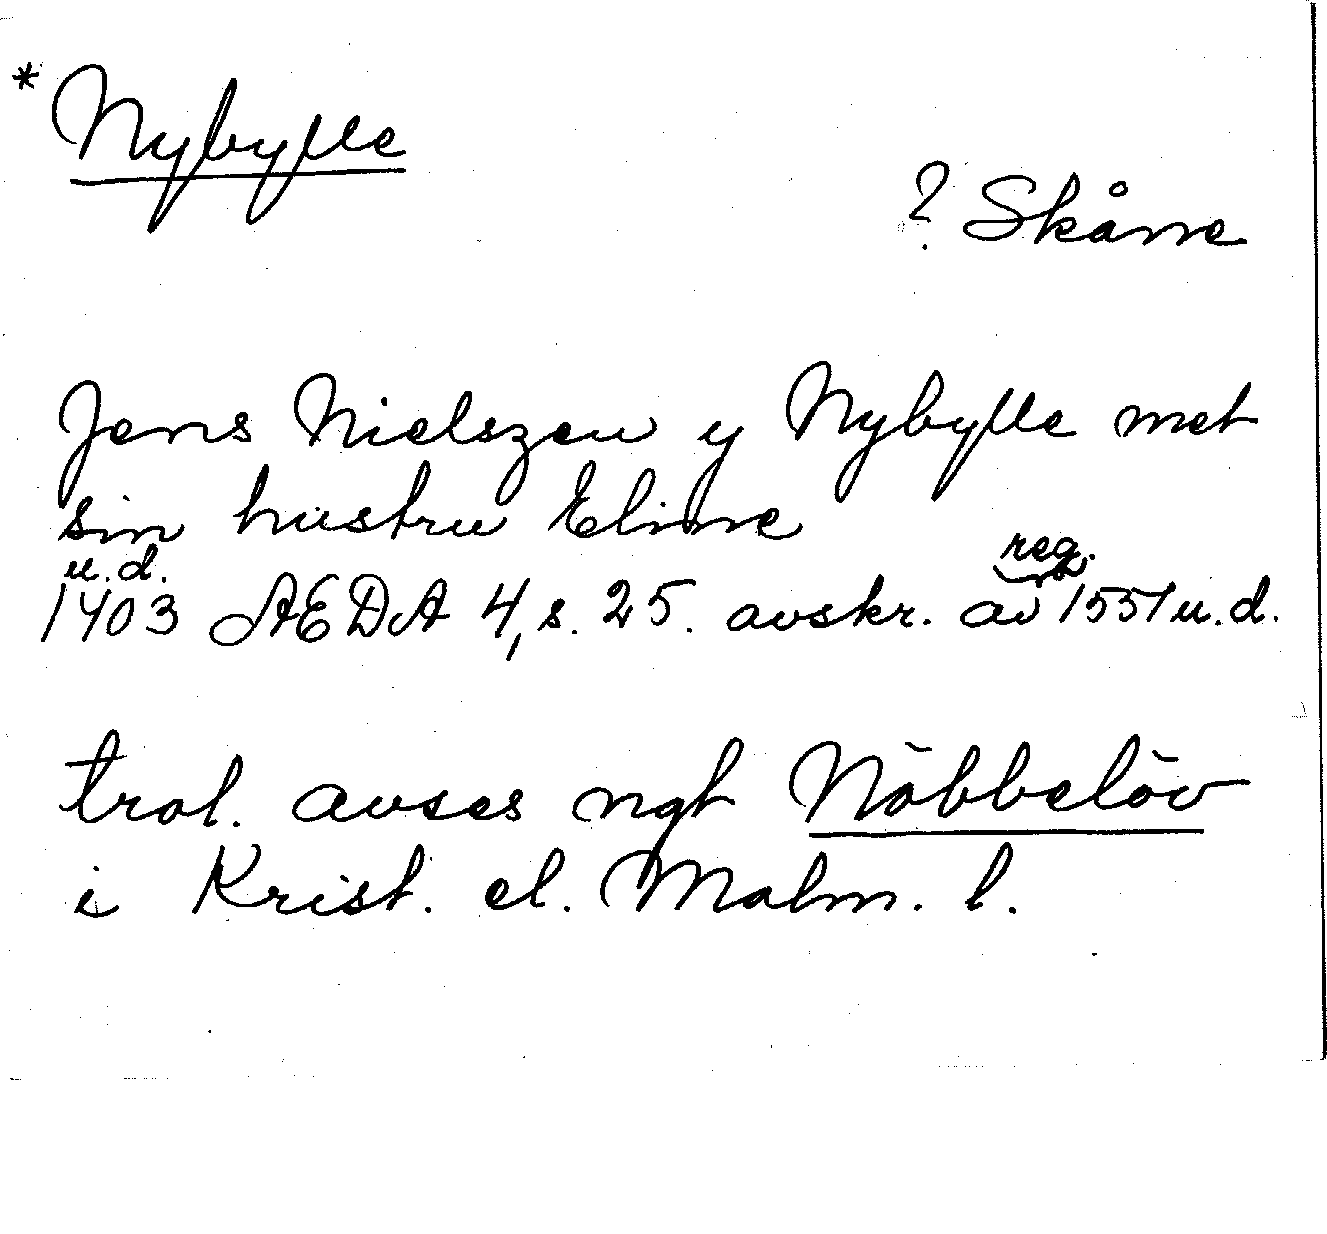 * Nybylle
? Skåne
Jens Nielszen y Nybylle met
sin hustru Eline
u.d. reg.
1403 AEDA 4, s. 25. avskr. av 1551 u.d.
trol. avses ngt Nöbbelöv
i Krist. el. Malm. l.